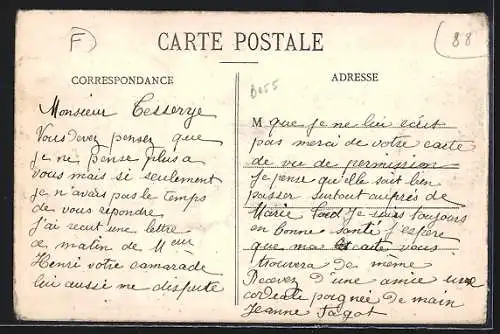 F
88
CARTE POSTALE
CORRESPONDANCE
ADRESSE
Monsieur Tesserye
Vous devez pensez que
je ne pense plus a
vous mais si seulement
je n'avais pas le temps
de vous répondre
j'ai recut une lettre
ce matin de Meur
Henri votre camarade
lui aussi me dispute
M que je ne lui écrit
pas merci de votre carte
de vie de permission
Je pense qu'elle sait bien
passer surtout auprés de
Marie tord Je suis toujours
en bonne santé j'espere
que ma carte vous
trouvera de même
Recevez d'une amie une
cordiale poignée de main
Jeanne Fagot